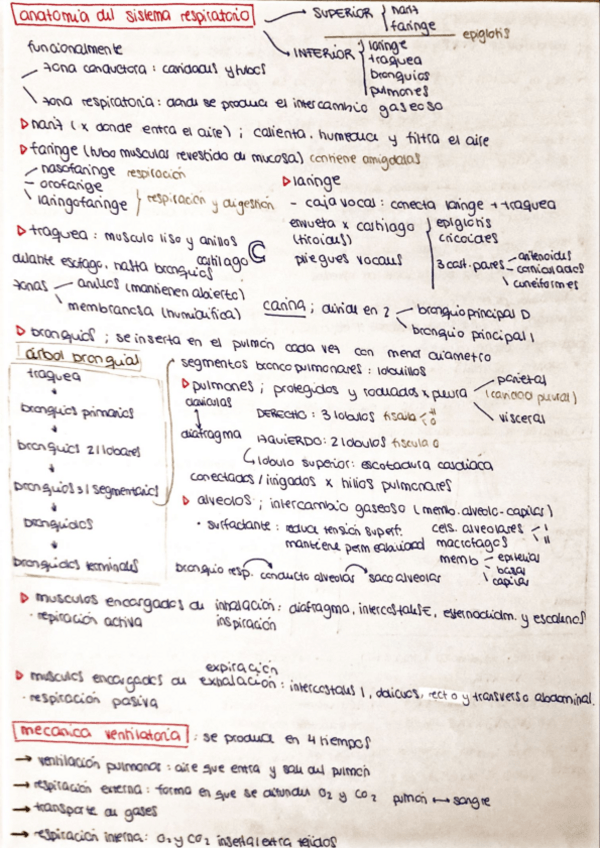 anatomia del sistema respiratorio
SUPERIOR nariz
faringe
epiglotis
INFERIOR laringe
traquea
bronquios
pulmones
funcionalmente
zona conductora : cavidades y tubos
zona respiratoria : donde se produce el intercambio gaseoso
▷ nariz (x donde entra el aire) ; calienta, humedece y filtra el aire
▷ faringe (tubo muscular revestido de mucosa) contiene amigdalas
- nasofaringe respiración
- orofaringe
\ laringofaringe } respiración y digestión
▷ laringe
- caja vocal : conecta laringe + traquea
envuelta x cartilago
(tiroides)
pliegues vocales
epiglotis
cricoides
3 cart. pares - aritenoides
corniculados
cuneiformes
▷ traquea : musculo liso y anillos
cartilago C
delante esofago, hasta bronquios
zonas anillos (mantienen abierto)
membranosa (humidifica)
carina ; divide en 2 bronquio principal D
bronquio principal I
▷ bronquios ; se inserta en el pulmón cada vez con menor diametro
árbol bronquial
traquea
bronquios primarios
bronquios 2/lobares
bronquios 3/segmentarios
bronquiolos
bronquiolos terminales
segmentos broncopulmonares : lobulillos
▷ pulmones ; protegidos y rodeados x pleura
parietal
(cavidad pleural)
visceral
claviculas
diafragma
DERECHO : 3 lobulos fisura
IZQUIERDO : 2 lobulos fisura o
lobulo superior : escotadura cardiaca
conectados / irrigados x hilios pulmonares
▷ alveolos ; intercambio gaseoso (memb. alveolo-capilar)
· surfactante : reduce tensión superf.
mantiene permeabilidad
cels. alveolares I
II
macrofagos
memb epitelial
basal
capilar
bronquio resp. conducto alveolar saco alveolar
▷ musculos encargados de inhalación : diafragma, intercostales E, esternocleidm. y escalenos
· repiración activa inspiración
expiración
▷ musculos encargados de exhalación : intercostales I, oblicuos, recto y transverso abdominal.
· respiración pasiva
mecanica ventilatoria : se produce en 4 tiempos
→ ventilación pulmonar : aire que entra y sale del pulmón
→ respiración externa : forma en que se difunden O2 y CO2 pulmón ↔ sangre
→ transporte de gases
→ respiración interna : O2 y CO2 extra tejidos